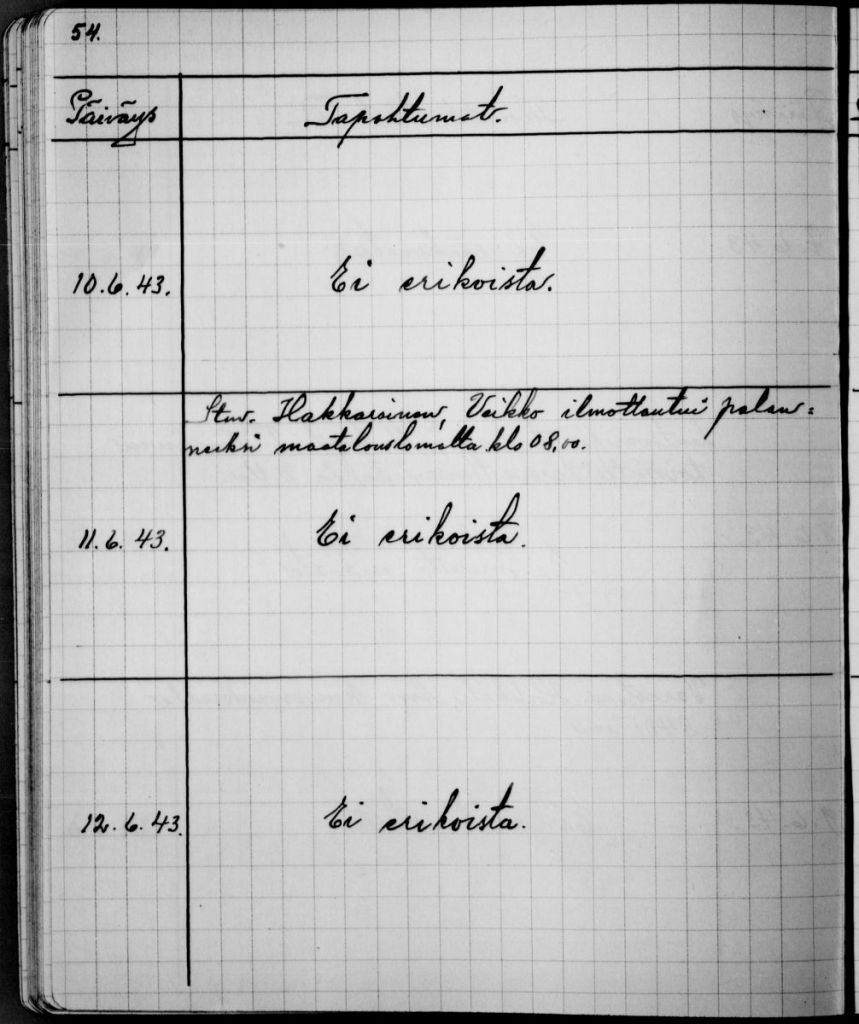 54.
Päiväys Tapahtumat.
10.6.43. Ei erikoista.
Stm. Hakkarainen, Veikko ilmottautui palan=
neeksi maatalouslomalta klo 08,00.
11.6.43. Ei erikoista.
12.6.43. Ei erikoista.